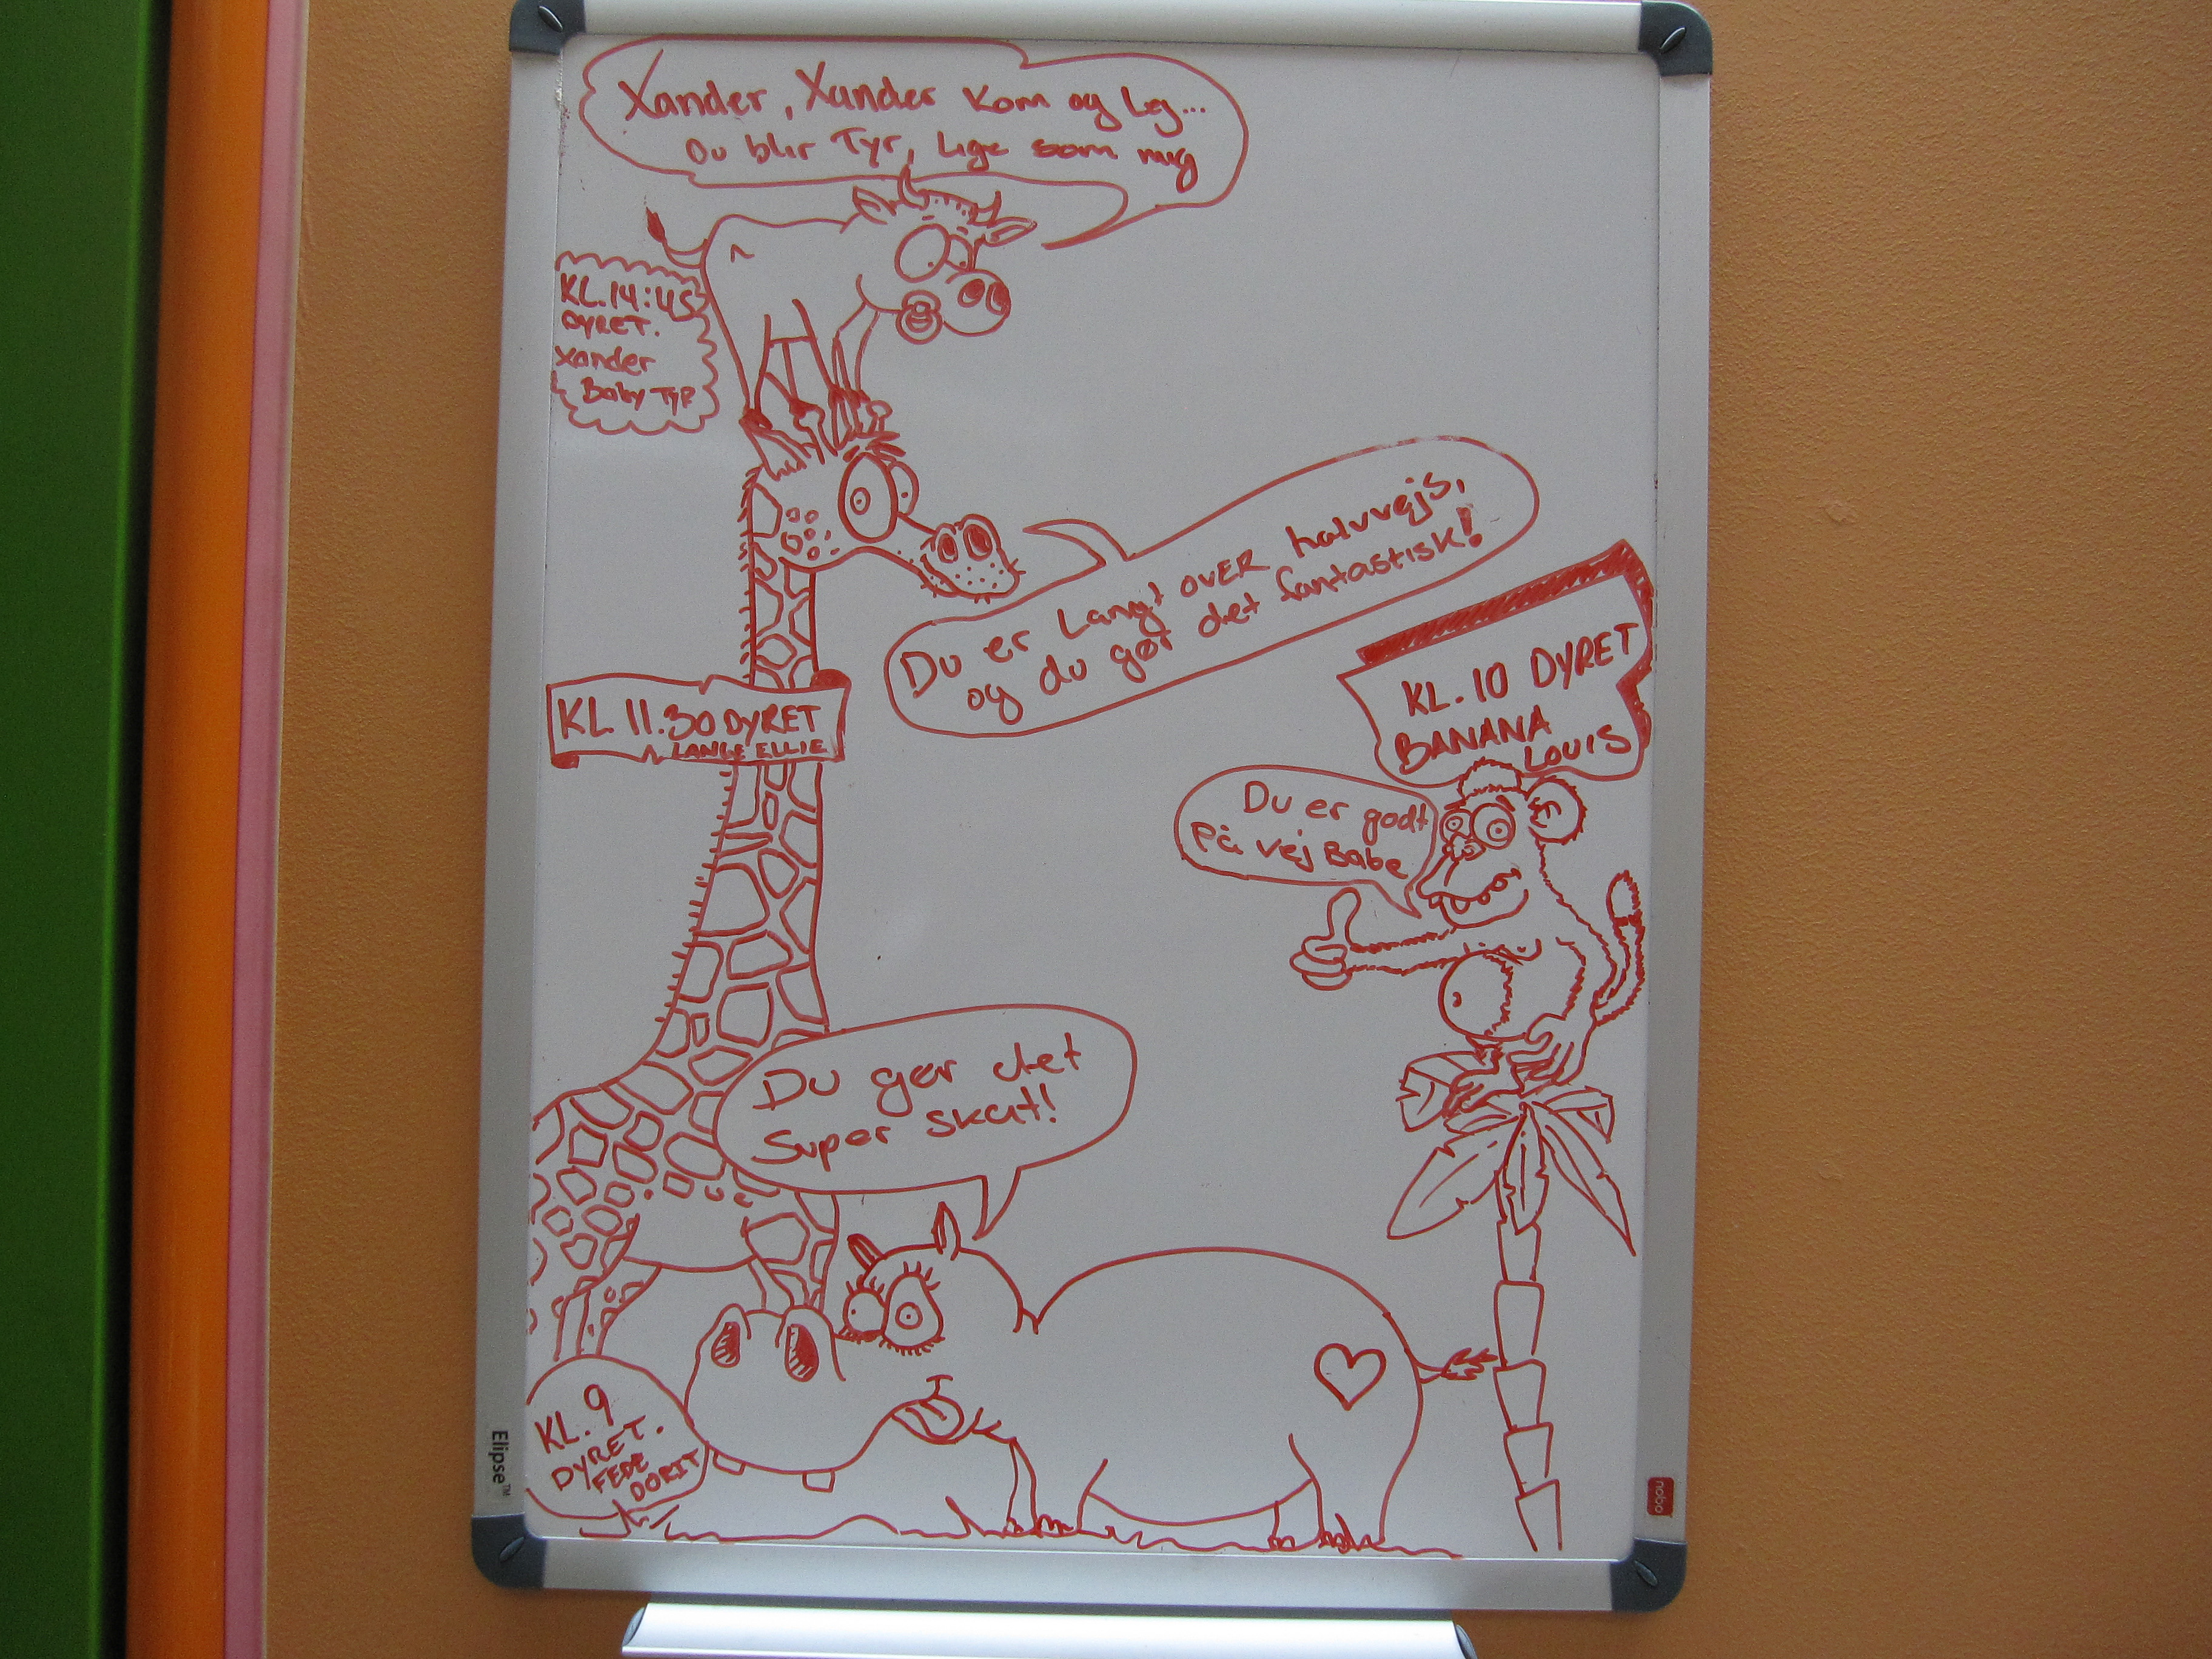 Xander, Xander kom og Leg...
Du blir Tyr, Lige som mig
KL.14:45
DYRET.
Xander
Baby TYR
Du er Langt OVER halvvejs,
og du gør det fantastisk!
KL. 11.30 DYRET
LANGE ELLIE
KL. 10 DYRET
BANANA
LOUIS
Du er godt
På vej Babe
Du gør det
Super skat!
KL. 9
DYRET.
FEDE
DORIT
Elipse™
nobo